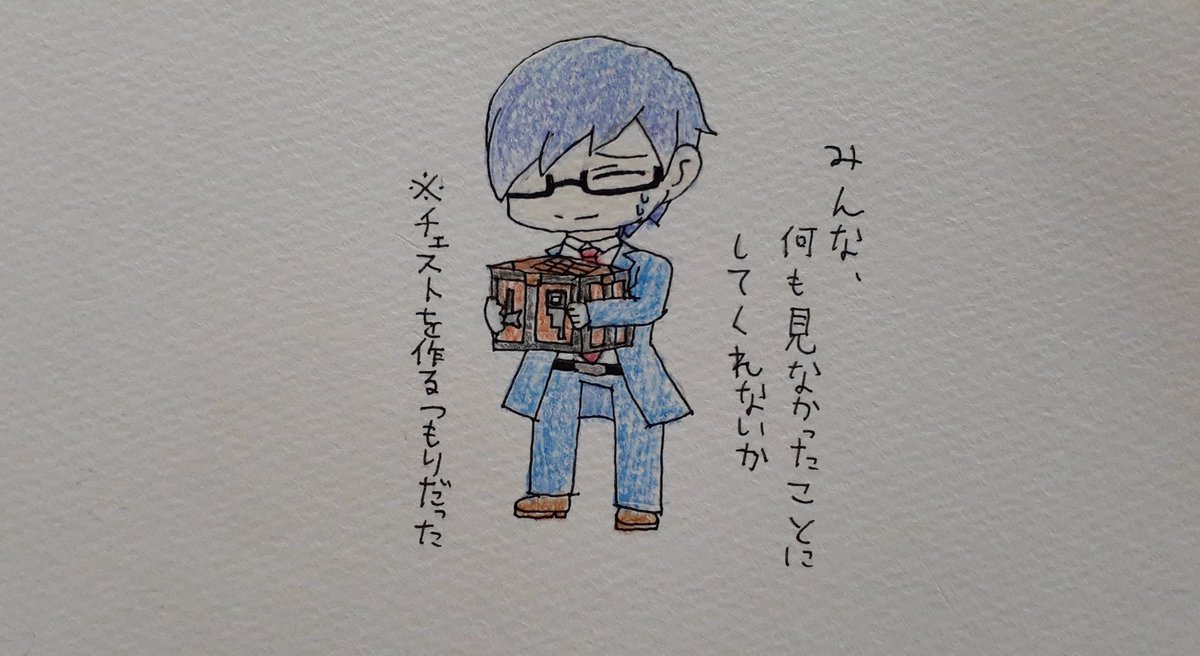 みんな、
何も見なかったことに
してくれないか
※チェストを作るつもりだった